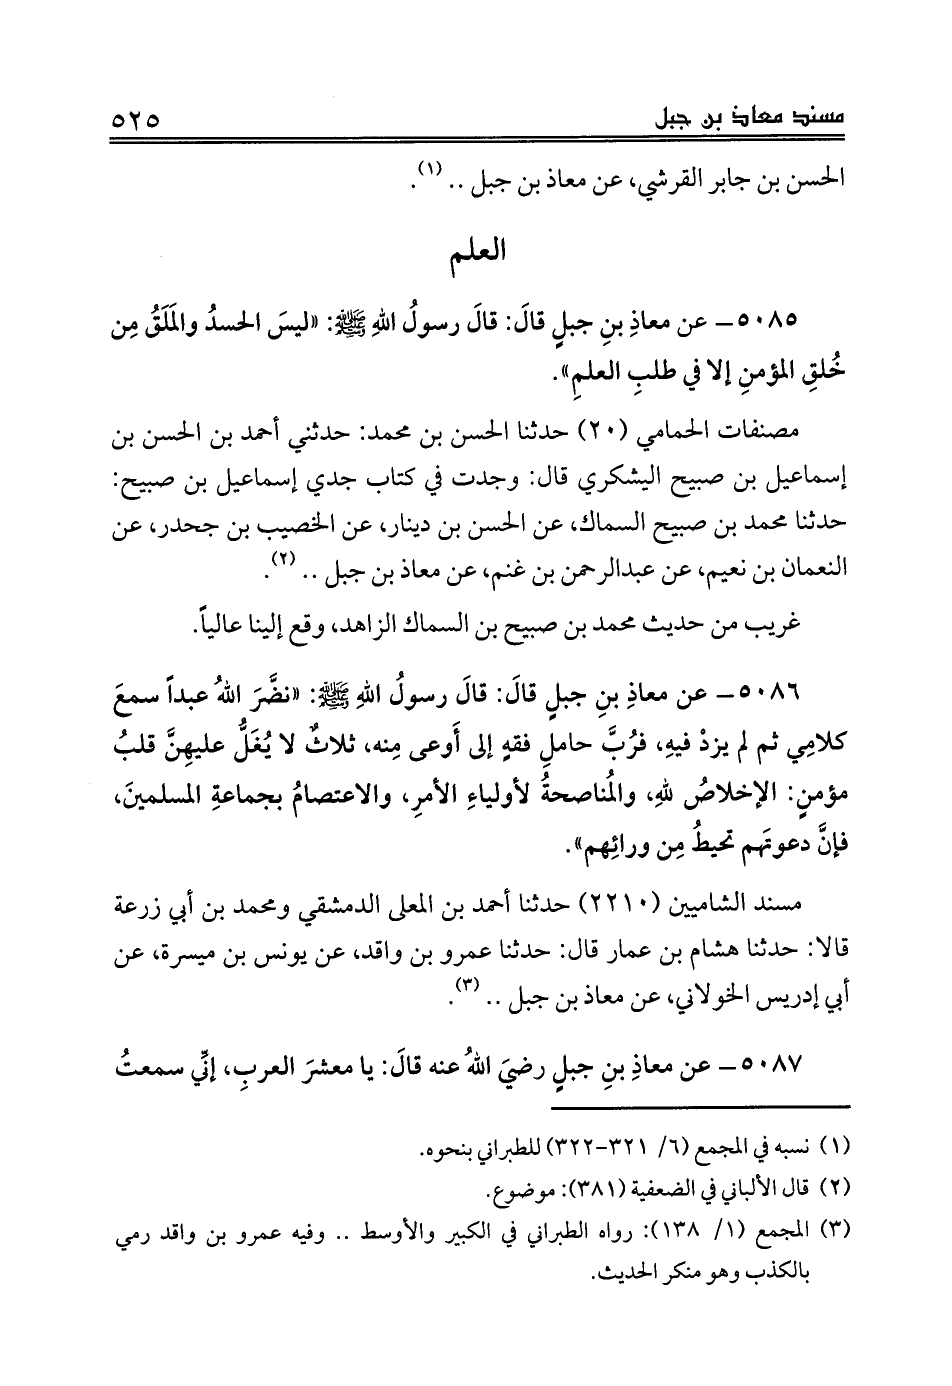 مسند معاذ بن جبل ٥٢٥
الحسن بن جابر القرشي، عن معاذ بن جبل .. (١).
العلم
٥٠٨٥ – عن معاذِ بنِ جبلٍ قالَ: قالَ رسولُ اللهِ ﷺ: «ليسَ الحسدُ والمَلَقُ مِن
خُلقِ المؤمنِ إلا في طلبِ العلمِ».
مصنفات الحمامي (٢٠) حدثنا الحسن بن محمد: حدثني أحمد بن الحسن بن
إسماعيل بن صبيح اليشكري قال: وجدت في كتاب جدي إسماعيل بن صبيح:
حدثنا محمد بن صبيح السماك، عن الحسن بن دينار، عن الخصيب بن جحدر، عن
النعمان بن نعيم، عن عبدالرحمن بن غنم، عن معاذ بن جبل .. (٢).
غريب من حديث محمد بن صبيح بن السماك الزاهد، وقع إلينا عالياً.
٥٠٨٦ – عن معاذِ بنِ جبلٍ قالَ: قالَ رسولُ اللهِ ﷺ: «نضَّرَ اللهُ عبداً سمعَ
كلامِي ثم لم يزدْ فيهِ، فرُبَّ حاملِ فقهٍ إلى أَوعى مِنه، ثلاثٌ لا يُغَلُّ عليهِنَّ قلبُ
مؤمنٍ: الإخلاصُ للهِ، والمُناصحةُ لأولياءِ الأمرِ، والاعتصامُ بجماعةِ المسلمينَ،
فإنَّ دعوتَهم تحيطُ مِن ورائِهم».
مسند الشاميين (٢٢١٠) حدثنا أحمد بن المعلى الدمشقي ومحمد بن أبي زرعة
قالا: حدثنا هشام بن عمار قال: حدثنا عمرو بن واقد، عن يونس بن ميسرة، عن
أبي إدريس الخولاني، عن معاذ بن جبل .. (٣).
٥٠٨٧ – عن معاذِ بنِ جبلٍ رضيَ اللهُ عنه قالَ: يا معشرَ العربِ، إنِّي سمعتُ
(١) نسبه في المجمع (٦/ ٣٢١-٣٢٢) للطبراني بنحوه.
(٢) قال الألباني في الضعفية (٣٨١): موضوع.
(٣) المجمع (١/ ١٣٨): رواه الطبراني في الكبير والأوسط .. وفيه عمرو بن واقد رمي
بالكذب وهو منكر الحديث.